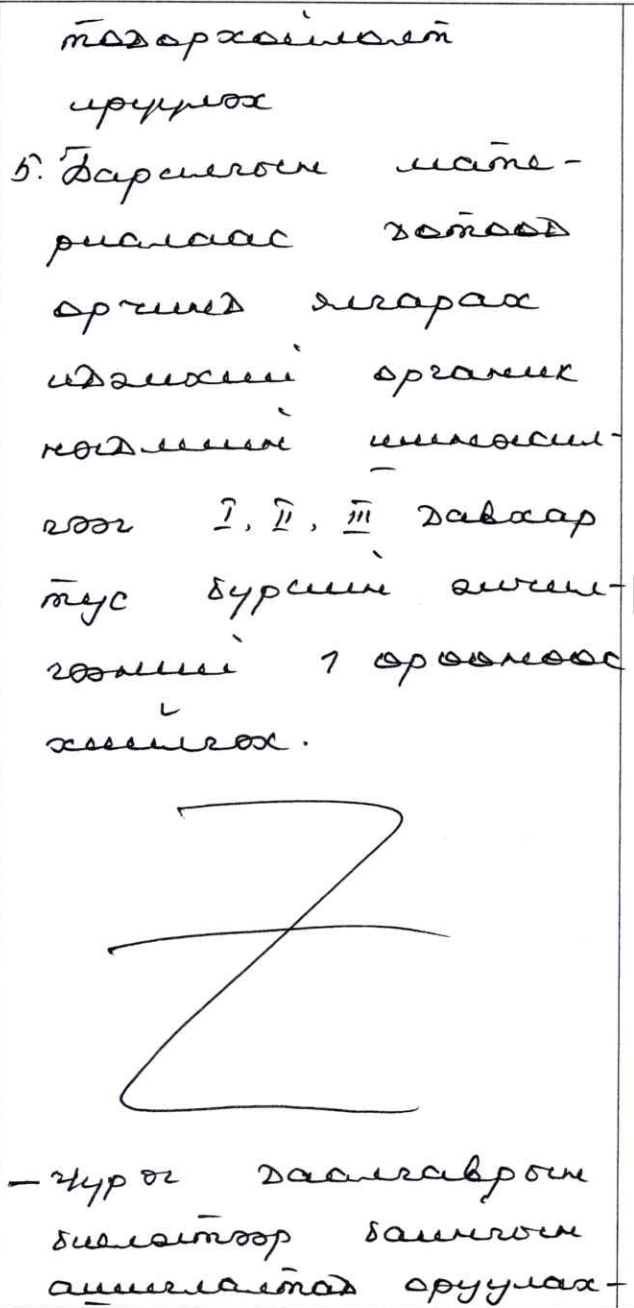 тодорхойлолт
ирүүлэх
5. Барилгын мате-
риалаас дотоод
орчинд ялгарах
идэмхий органик
нэгдлийн шинжил-
гээг I, II, III давхар
тус бүрийн эмчил-
гээний 1 өрөөнөөс
хийлгэх.
- Үүрэг даалгаврын
биелэлтээр байнгын
ашиглалтад оруулах-